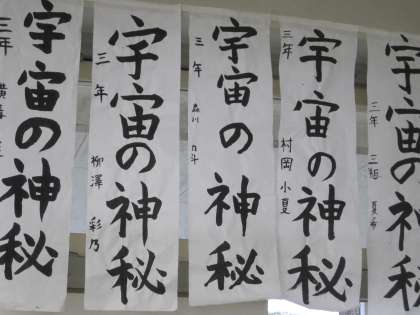 宇宙の神秘
三年
宇宙の神秘
三年 柳澤 彩乃
宇宙の神秘
三年
宇宙の神秘
三年 村岡 小夏
宇宙の神秘
三年 三組 夏希